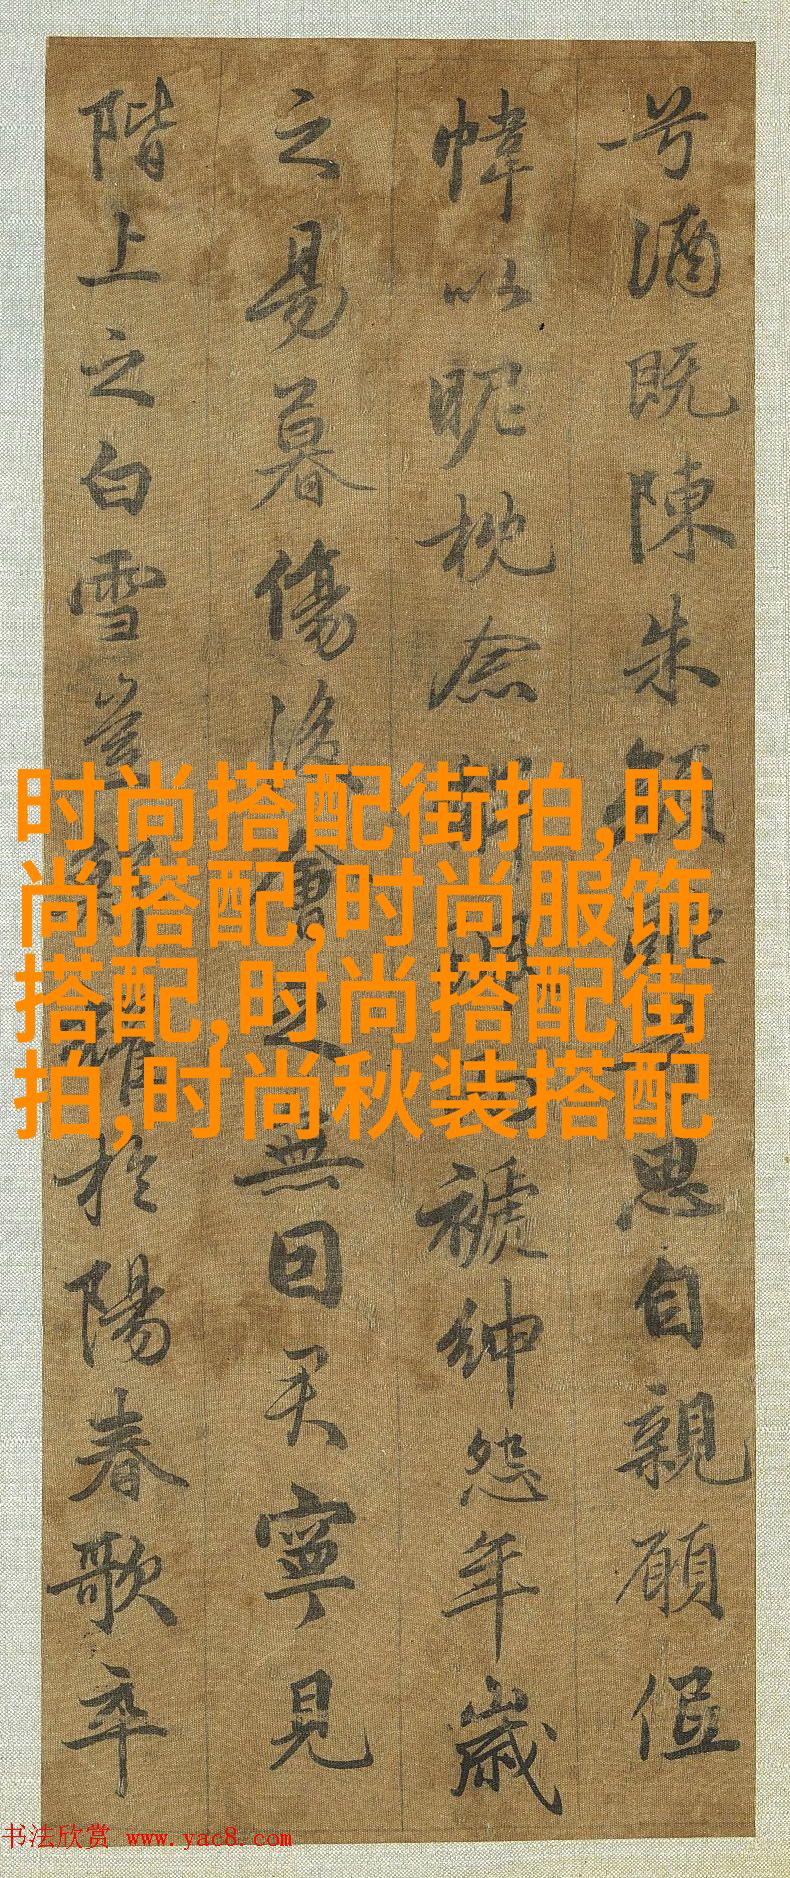 兮酒既陳朱顏思自親願低
幃以昵枕念解褫紳怨年歲
之易暮傷後會之無因君寧見
階上之白雪豈鮮耀於陽春歌卒
时尚搭配街拍,时
尚搭配,时尚服饰
搭配,时尚搭配街
拍,时尚秋装搭配
书法欣赏 www.yac8.com